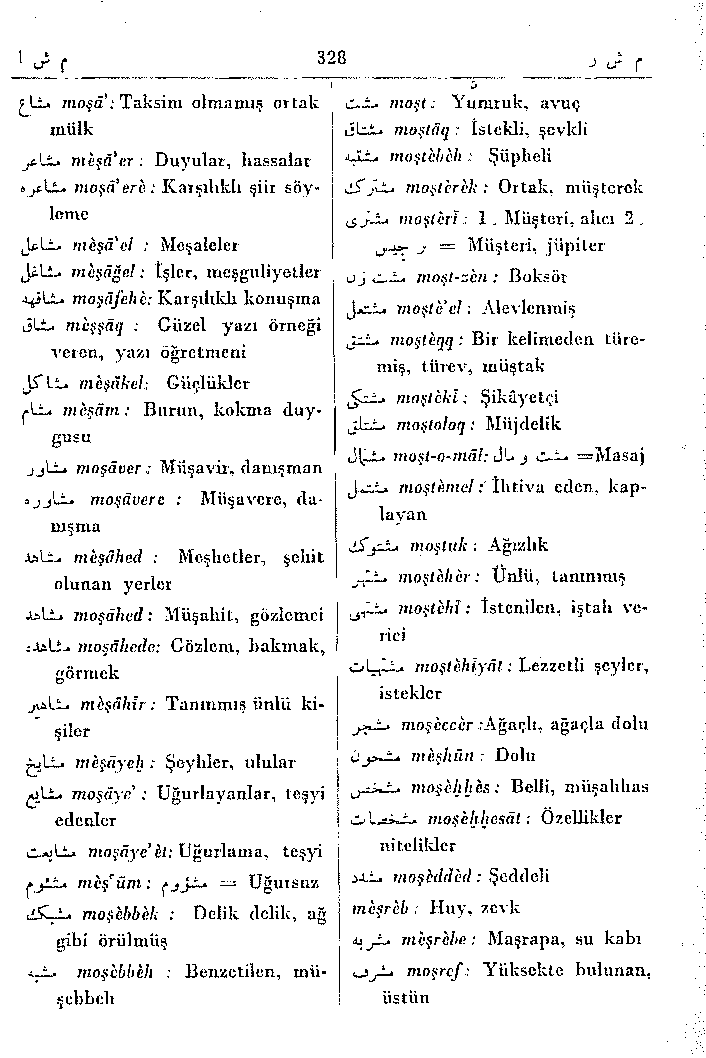 م ش ا 328 م ش ر
مشاع moşā': Taksim olmamış ortak
mülk
مشاعر mèşā'er : Duyular, hassalar
مشاعره moşā'erè : Karşılıklı şiir söy-
leme
مشاعل mèşā'el : Meşaleler
مشاغل mèşāğel : İşler, meşguliyetler
مشافهه moşāfehè: Karşılıklı konuşma
مشاق mèşşāq : Güzel yazı örneği
veren, yazı öğretmeni
مشاكل mèşākel: Güçlükler
مشام mèşām : Burun, kokma duy-
gusu
مشاور moşāver : Müşavir, danışman
مشاوره moşāvere : Müşavere, da-
nışma
مشاهد mèşāhed : Meşhetler, şehit
olunan yerler
مشاهد moşāhed : Müşahit, gözlemci
مشاهده moşāhede: Gözlem, bakmak,
görmek
مشاهير mèşāhīr : Tanınmış ünlü ki-
şiler
مشايخ mèşāyeḫ : Şeyhler, ulular
مشايع moşāye' : Uğurlayanlar, teşyi
edenler
مشايعت moşāye'èt: Uğurlama, teşyi
مشئوم mèş'ūm : مشؤوم = Uğursuz
مشبك moşèbbèk : Delik delik, ağ
gibi örülmüş
مشبه moşèbbèh : Benzetilen, mü-
şebbeh
مشت moşt : Yumruk, avuç
مشتاق moştāq : İstekli, şevkli
مشتبه moştèbèh : Şüpheli
مشترك moştèrèk : Ortak, müşterek
مشترى moştèrī : 1 . Müşteri, alıcı 2 .
ر جيس = Müşteri, jüpiter
مشت زن moşt-zèn : Boksör
مشتعل moştè'el : Alevlenmiş
مشتق moştèqq : Bir kelimeden türe-
miş, türev, müştak
مشتكى moştèkī : Şikâyetçi
مشتلق moştoloq : Müjdelik
مشتمال moşt-o-māl: مشت و مال =Masaj
مشتمل moştèmel : İhtiva eden, kap-
layan
مشتوك moştuk : Ağızlık
مشتهر moştèhèr : Ünlü, tanınmış
مشتهى moştèhī : İstenilen, iştah ve-
rici
مشتهيات moştèhīyāt : Lezzetli şeyler,
istekler
مشجر moşèccèr :Ağaçlı, ağaçla dolu
مشحون mèşhūn : Dolu
مشخص moşèḫḫès : Belli, müşahhas
مشخصات moşèḫḫesāt : Özellikler
nitelikler
مشدد moşèddèd : Şeddeli
mèşrèb : Huy, zevk
مشربه mèşrèbe : Maşrapa, su kabı
مشرف moşref : Yüksekte bulunan,
üstün